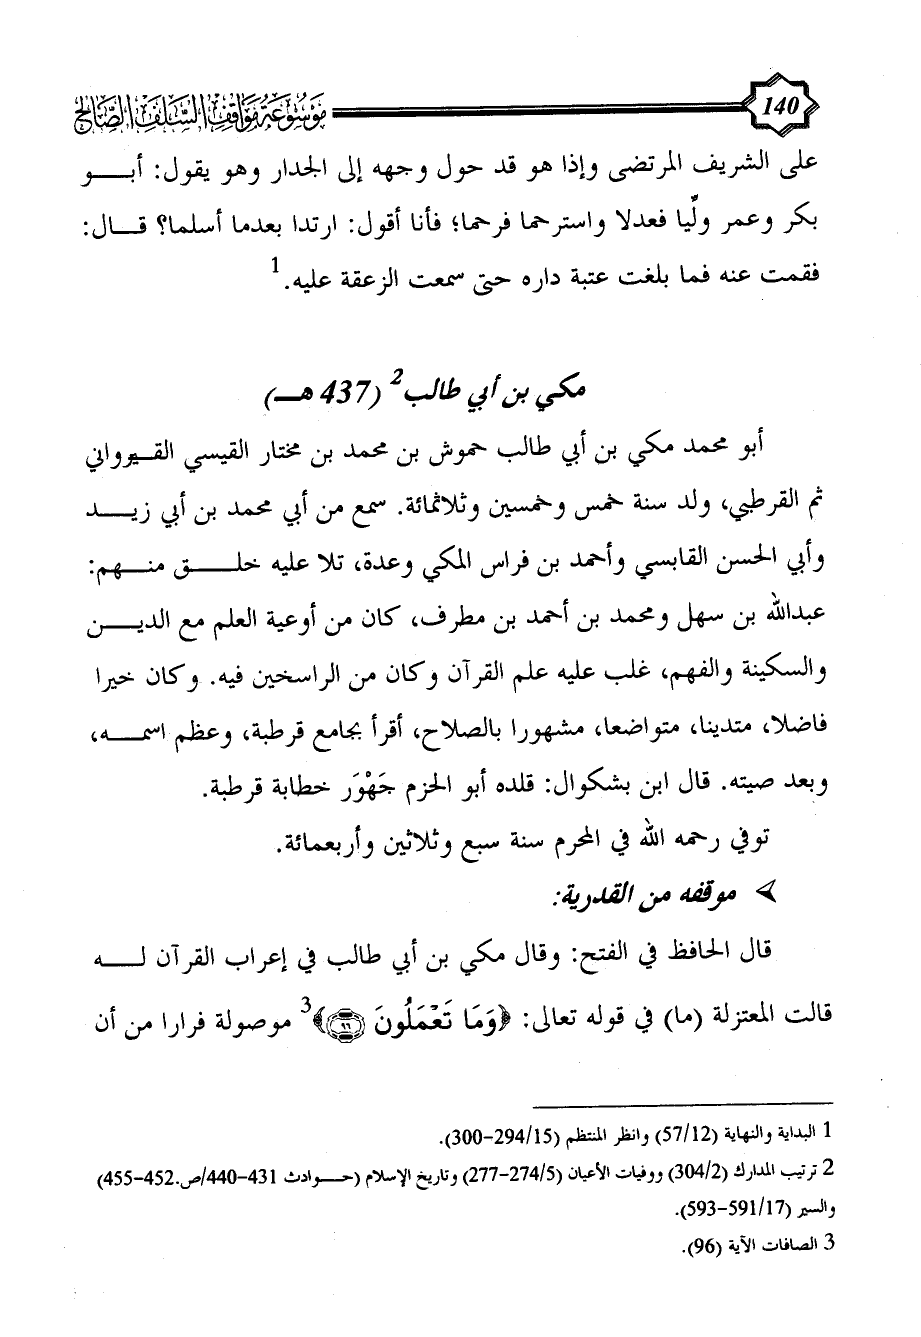 140 موسوعة مواقف السلف الصالح
على الشريف المرتضى وإذا هو قد حول وجهه إلى الجدار وهو يقول: أبـــو
بكر وعمر ولِّيا فعدلا واسترحما فرحما؛ فأنا أقول: ارتدا بعدما أسلما؟ قـــال:
فقمت عنه فما بلغت عتبة داره حتى سمعت الزعقة عليه.1
مكي بن أبي طالب2 (437 هـــ)
أبو محمد مكي بن أبي طالب حموش بن محمد بن مختار القيسي القـــيرواني
ثم القرطبي، ولد سنة خمس وخمسين وثلاثمائة. سمع من أبي محمد بن أبي زيـــد
وأبي الحسن القابسي وأحمد بن فراس المكي وعدة، تلا عليه خلـــق منـــهم:
عبدالله بن سهل ومحمد بن أحمد بن مطرف، كان من أوعية العلم مع الديـــن
والسكينة والفهم، غلب عليه علم القرآن وكان من الراسخين فيه. وكان خيرا
فاضلا، متدينا، متواضعا، مشهورا بالصلاح، أقرأ بجامع قرطبة، وعظم اسمـــه،
وبعد صيته. قال ابن بشكوال: قلده أبو الحزم جَهْوَر خطابة قرطبة.
توفي رحمه الله في المحرم سنة سبع وثلاثين وأربعمائة.
➢ موقفه من القدرية:
قال الحافظ في الفتح: وقال مكي بن أبي طالب في إعراب القرآن لـــه
قالت المعتزلة (ما) في قوله تعالى: ﴿وَمَا تَعْمَلُونَ ۝٩٦﴾3 موصولة فرارا من أن
1 البداية والنهاية (57/12) وانظر المنتظم (294/15-300).
2 ترتيب المدارك (304/2) ووفيات الأعيان (274/5-277) وتاريخ الإسلام (حـــوادث 431-440/ص.452-455)
والسير (591/17-593).
3 الصافات الآية (96).